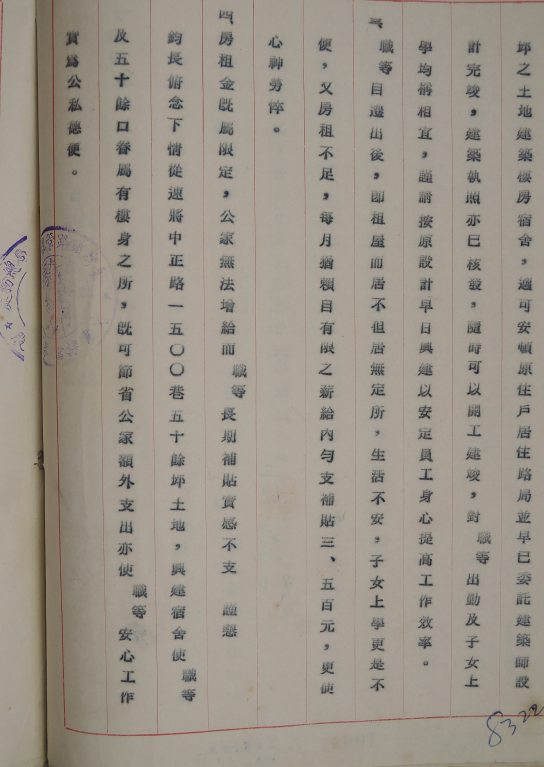 坪之土地建築樓房宿舍，適可安頓原住戶居住路局並早已委託建築師設
計完竣，建築執照亦已核發，隨時可以開工建竣，對職等出勤及子女上
學均稱相宜，謹請按原設計早日興建以安定員工身心提高工作效率。
職等自遷出後，即租屋而居不但居無定所，生活不安，子女上學更是不
便，又房租不足，每月猶賴自有限之薪給內勻支補貼三、五百元，更使
心神勞悴。
四、房租金既屬限定，公家無法增給而職等長期補貼實感不支 謹懇
鈞長俯念下情從速將中正路一五〇〇巷五十餘坪土地，興建宿舍使職等
及五十餘口眷屬有棲身之所，既可節省公家額外支出亦使職等安心工作
實爲公私德便。
8322